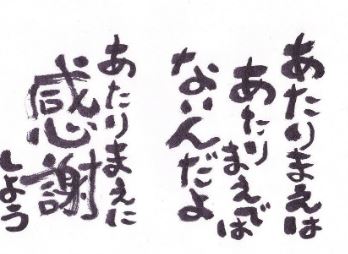 あたりまえは
あたりまえでは
ないんだよ
あたりまえに
感謝
しよう